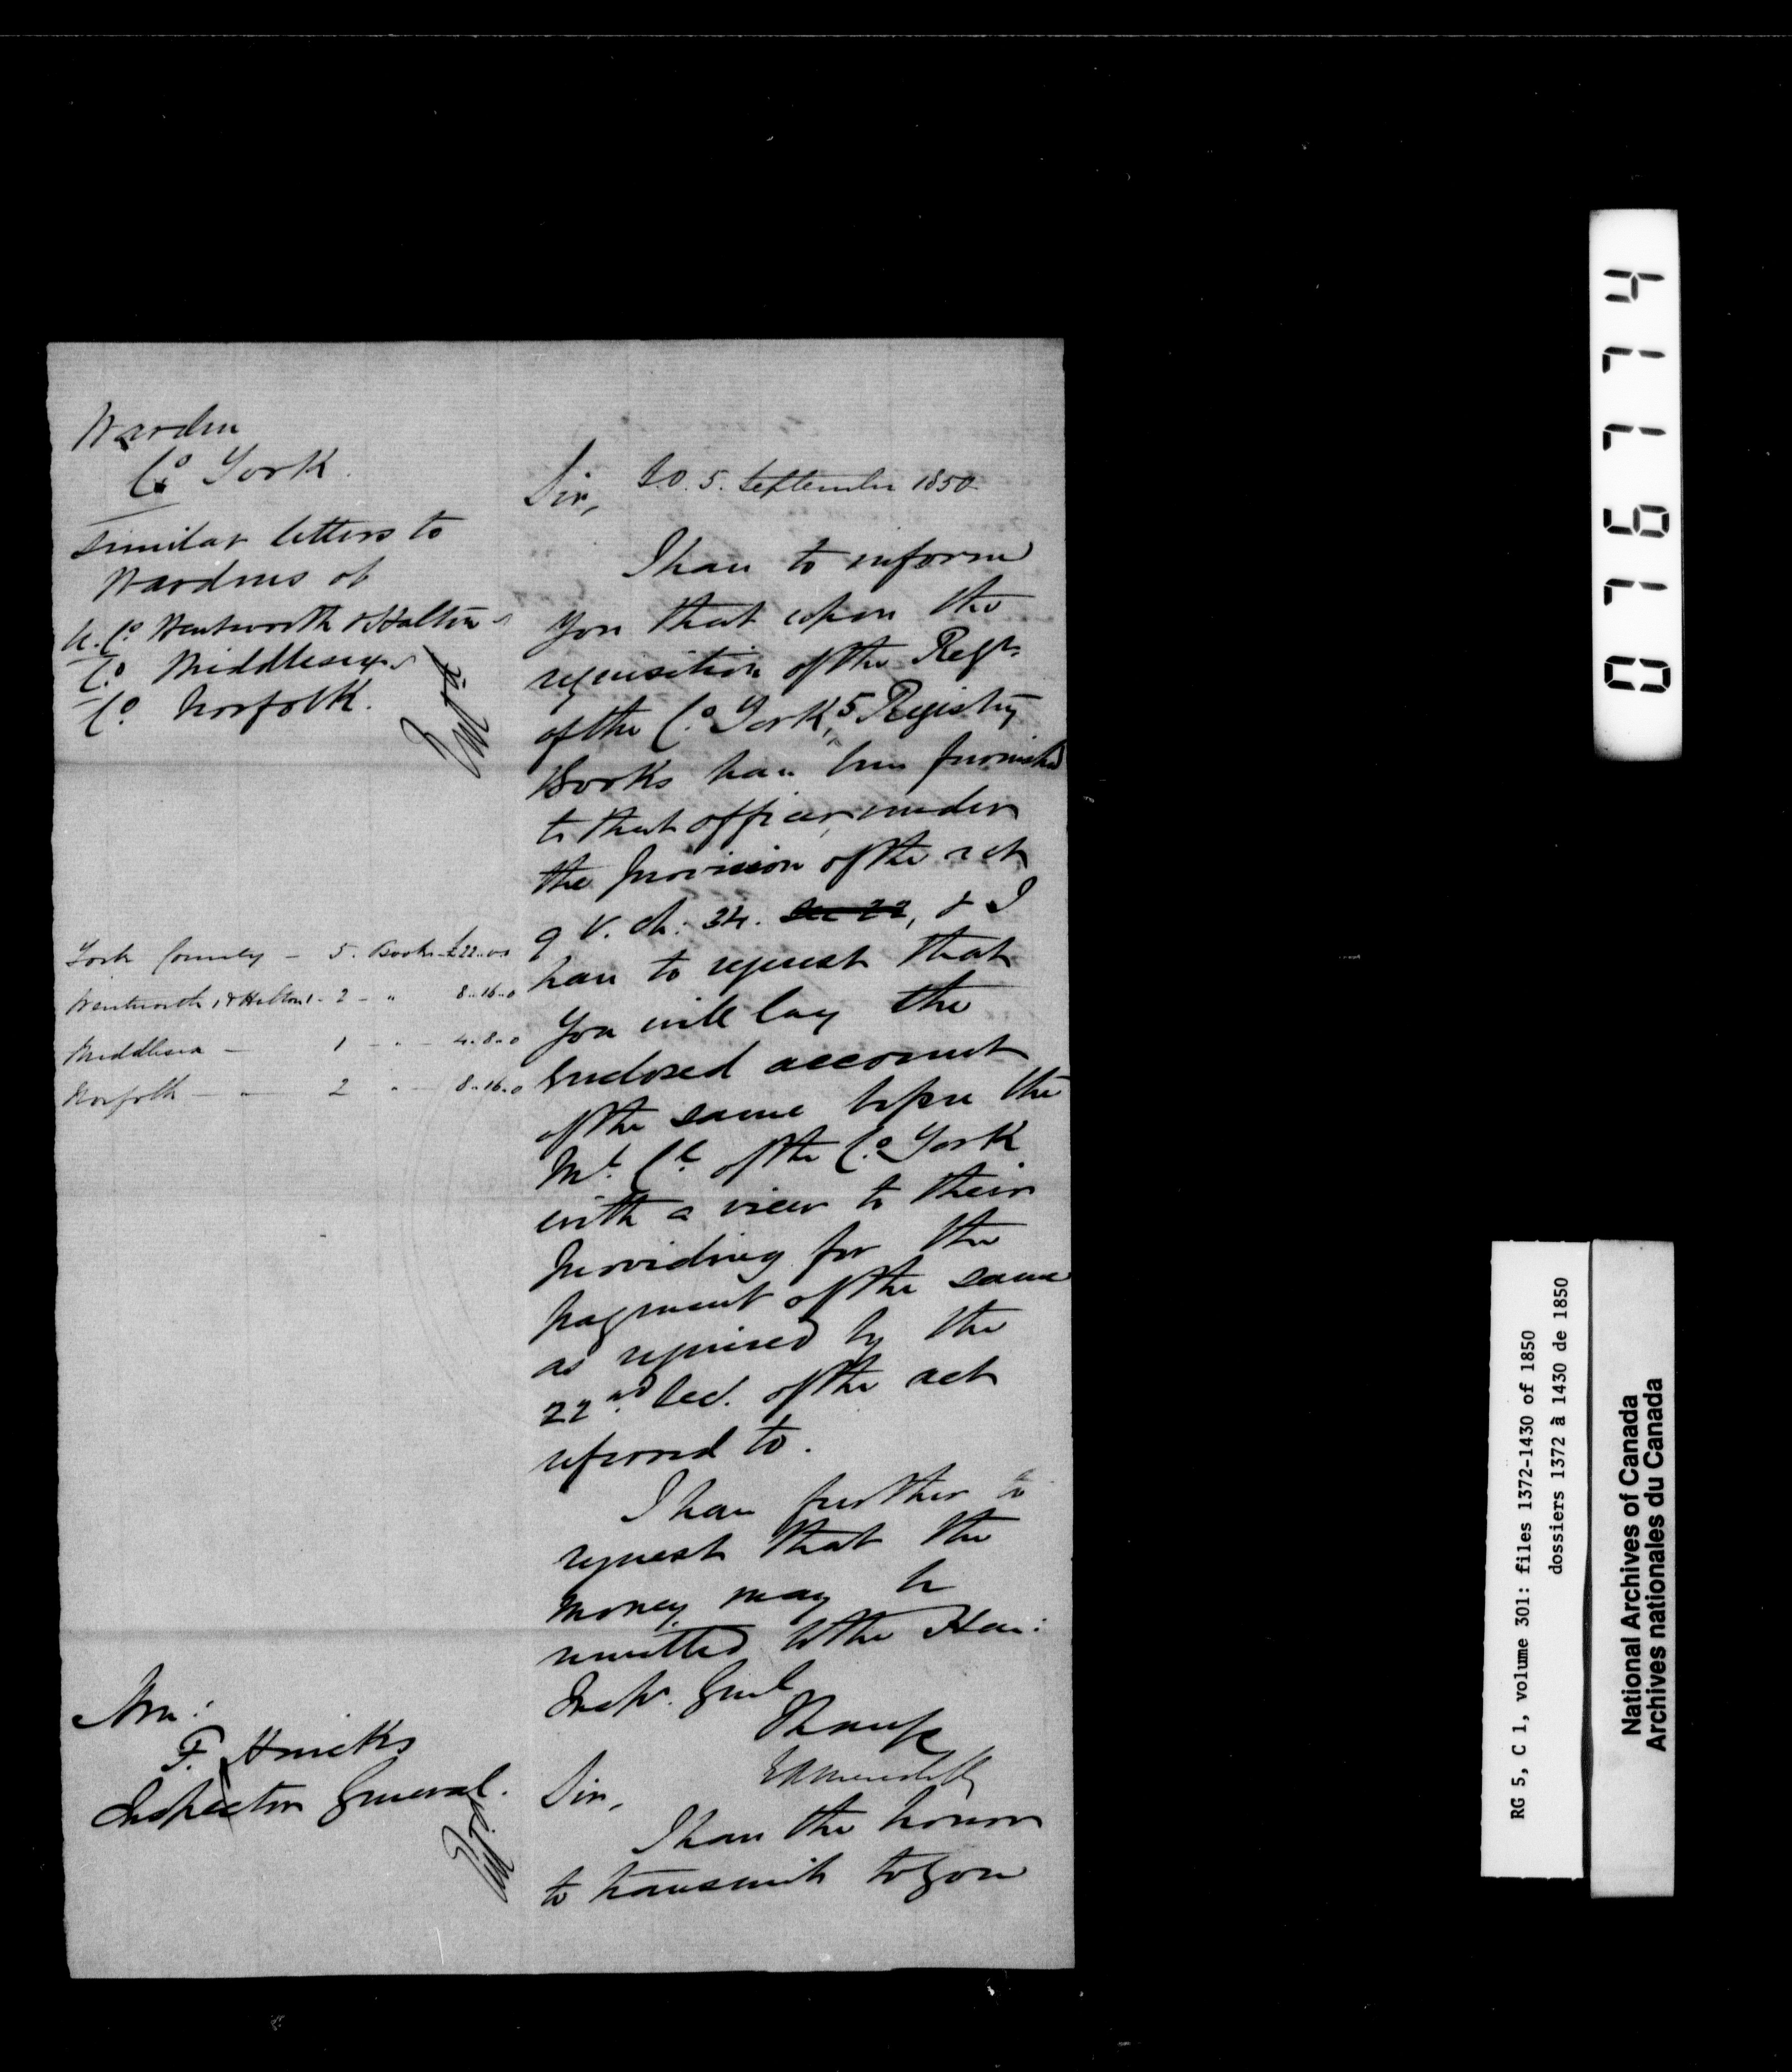 Warden
Co York.
Similar letters to
Wardens of
U. Co Wentworth & Halton
Co Middlesex
Co. Norfolk.
York County - 5. Books £22..0.0
Wentworth, & Halton, - 2 - " 8..16..0
Middlesex - 1 - " - 4..8..0
Norfolk - " - 2 " - 8..16..0
Hon:
F. Hincks
Inspector General.
Sir, 5. September 1850
I have to inform
you that upon the
requisition of the Regr.
of the Co. York, 5 Registry
Books have been furnished
to that officer, under
the provision of the act
9 V. ch: 34. Sec 22, & I
have to request that
you will lay the
Enclosed account
of the same before the
Ml. Cl. of the Co. York
with a view to their
providing for the
payment of the same
as required by the
22nd. Sec. of the act
referred to.
I have further to
request that the
money may be
remitted to the Hon:
Inspr. Genl
EA Meredith
Sir,
I have the honor
to transmit to you
074774
RG 5, C 1, volume 301: files 1372-1430 of 1850
dossiers 1372 à 1430 de 1850
National Archives of Canada
Archives nationales du Canada